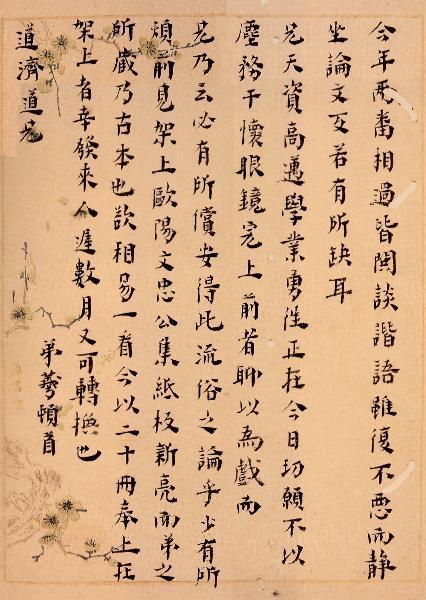 今年兩番相過皆閑談諧語雖復不惡而靜
坐論文反若有所缺耳
兄天資高邁學業勇往正在今日切願不以
塵務干懷眼鏡完上前者聊以為戲而
兄乃云必有所償安得此流俗之論乎少有所
煩前見架上歐陽文忠公集紙板新亮而弟之
所藏乃古本也欲相易一看今以二十冊奉上在
架上者幸發來人遲數月又可轉換也
弟頓首
道濟道兄